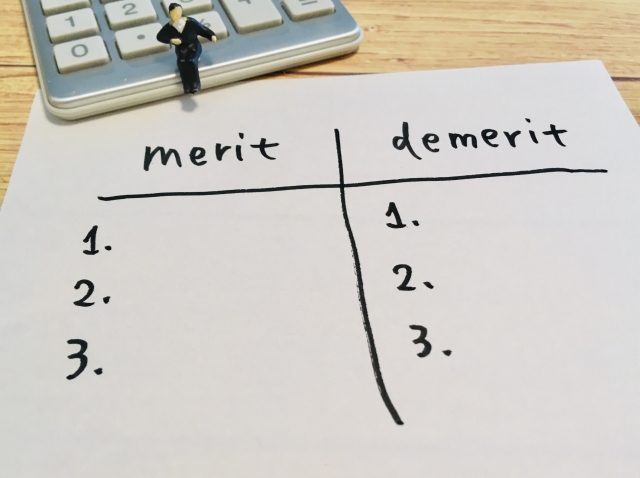 1 2
0 •
merit demerit
1. 1.
2. 2.
3. 3.